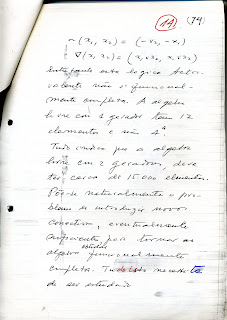 14 (74)
~ (x₁, x₂) = (-x₂, -x₁)
∇(x, x₂) = (x₁ v x₂, x₁ v x₂)
Entretanto esta lógica tetra-
valente não é funcional-
mente completa. A álgebra
livre com 1 gerador tem 12
elementos e não 4⁴
Tudo indica que a álgebra
livre com 2 geradores, deve
ter cerca de 15.000 elementos.
Põe-se naturalmente o pro-
blema de introduzir novos
conectivos, eventualmente
suficientes para tornar as
álgebras estudadas funcionalmente
completas. Tudo isto necessita
de ser estudado